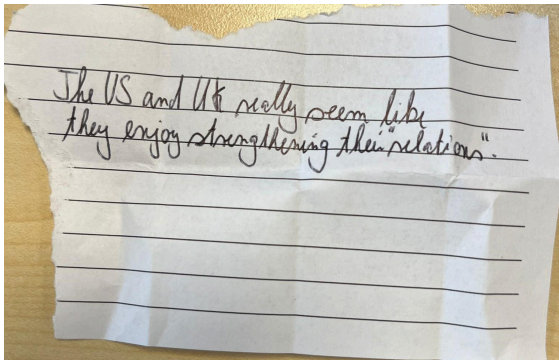 The US and UK really seem like
they enjoy strengthening their "relations".